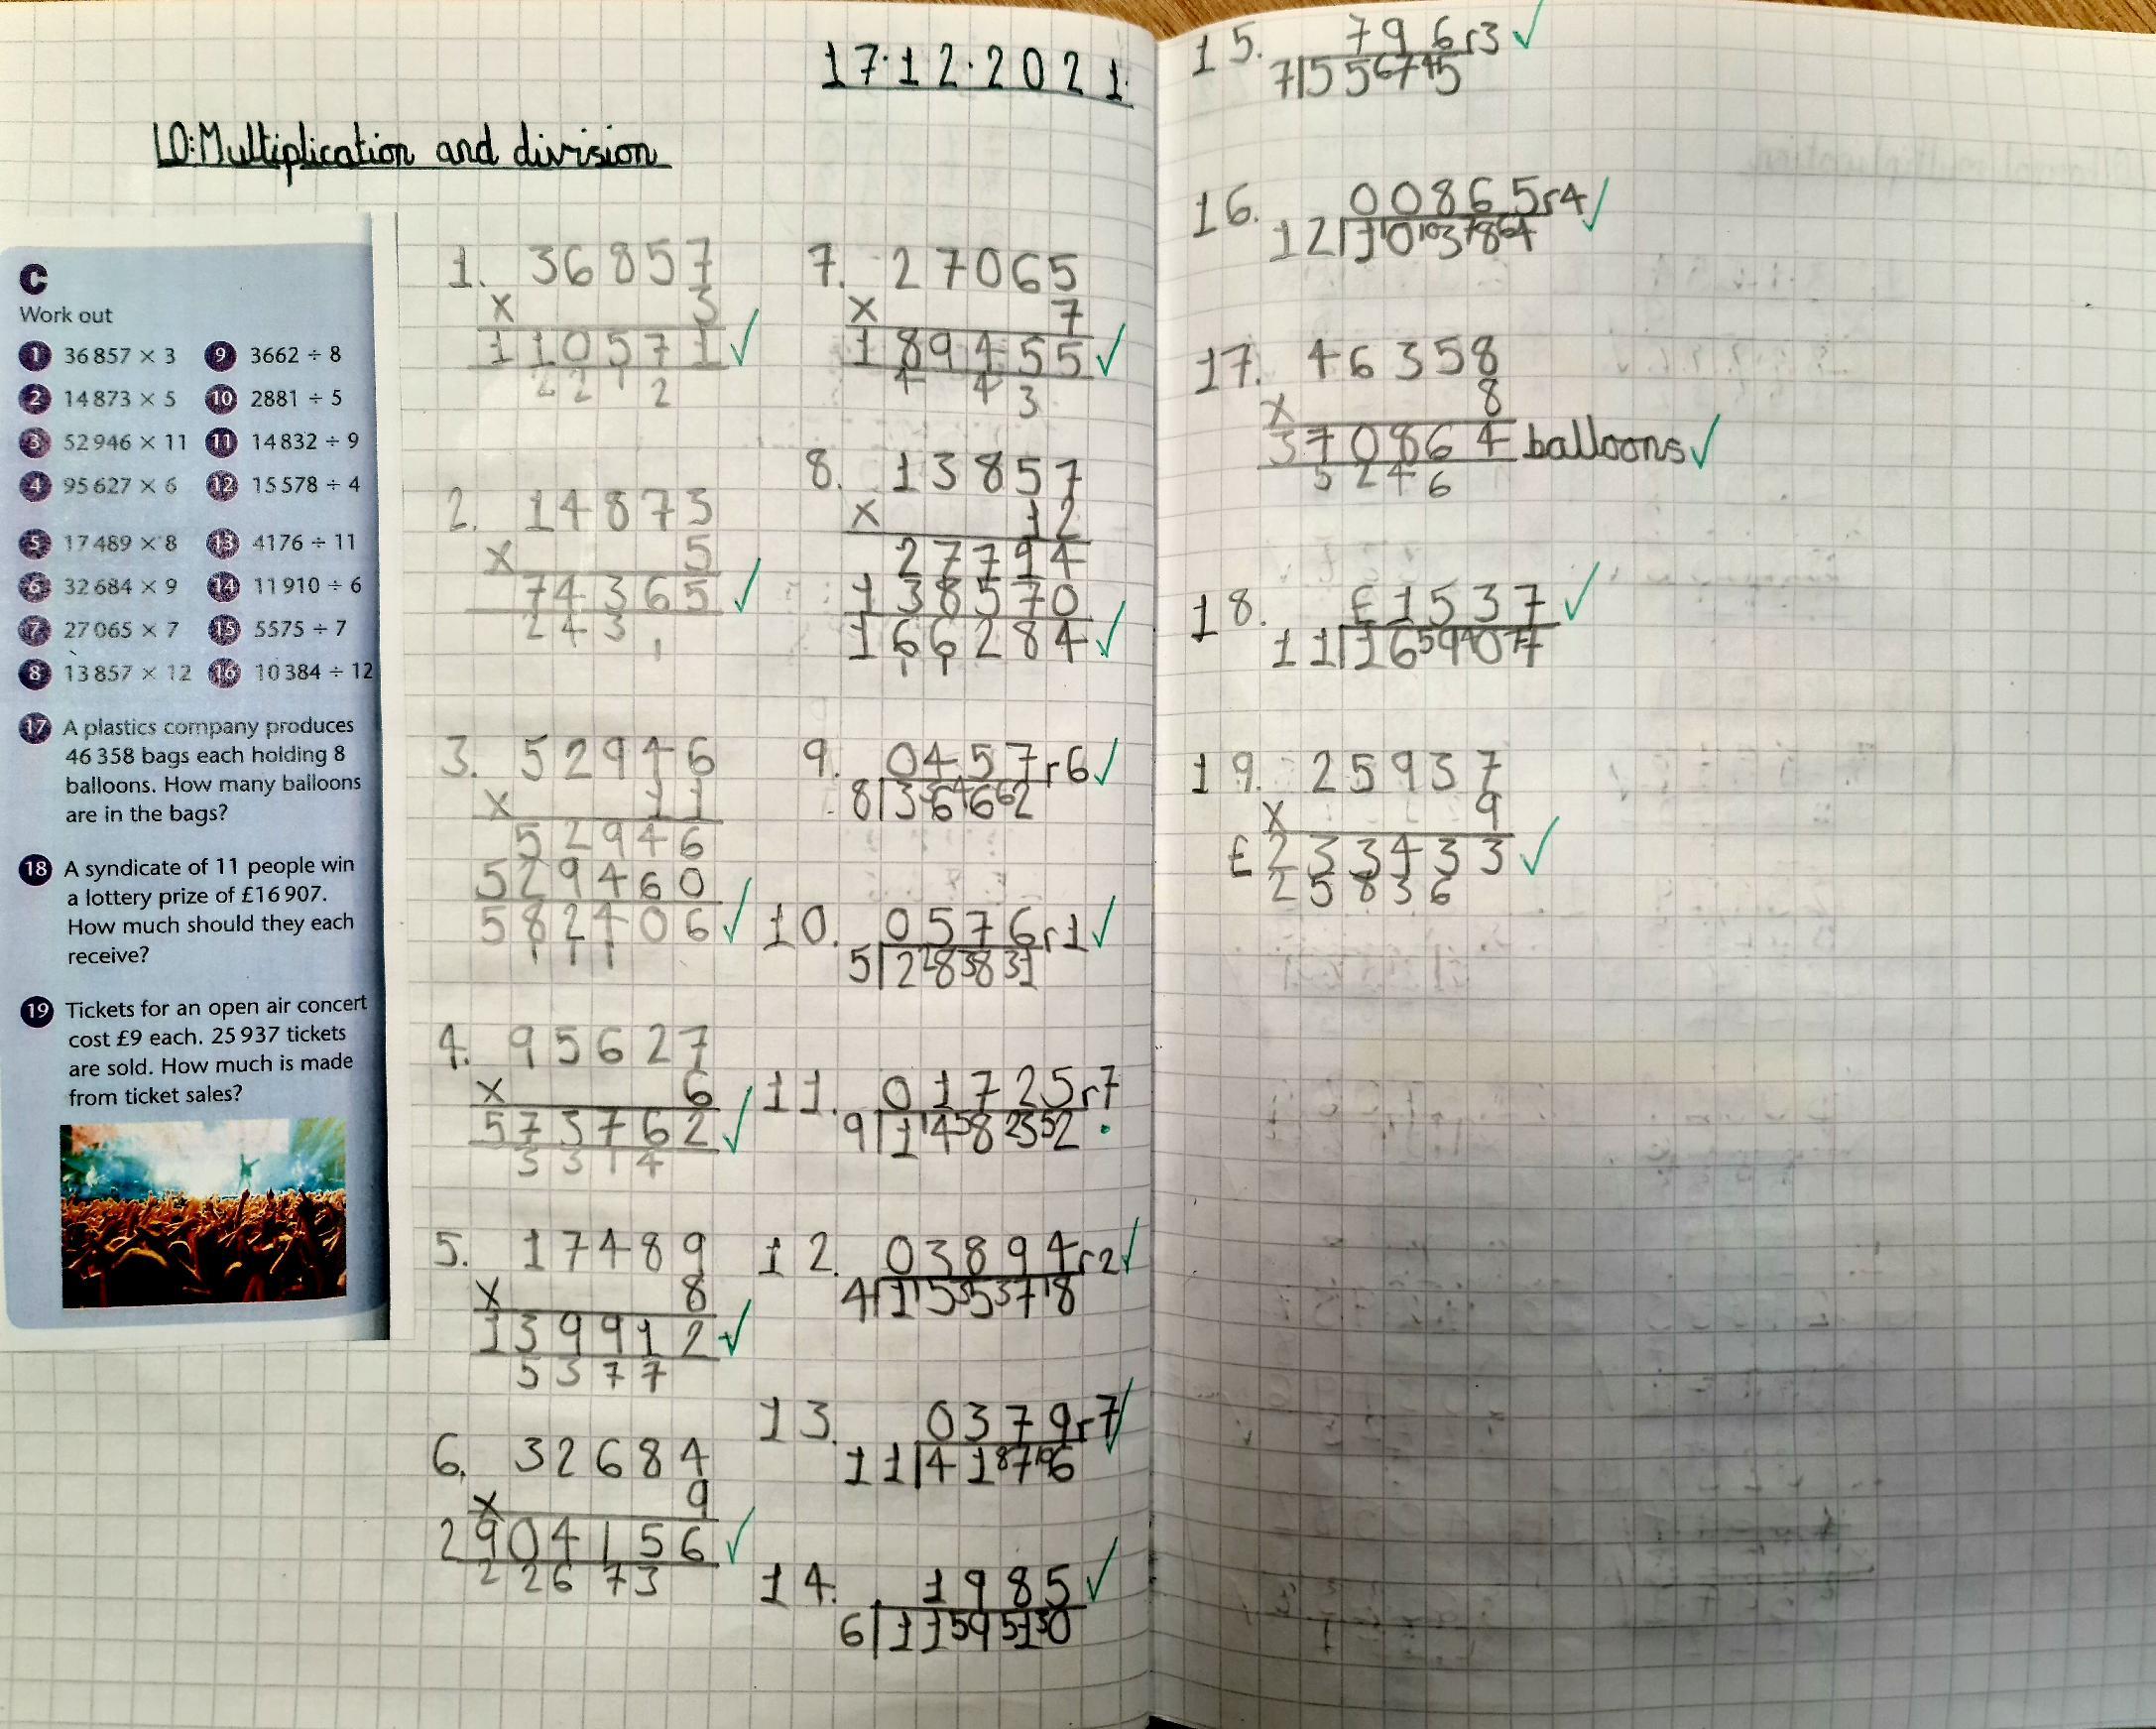 17.12.2021.
LO: Multiplication and division
C
Work out
1 36857 × 3 9 3662 ÷ 8
2 14873 × 5 10 2881 ÷ 5
3 52946 × 11 11 14832 ÷ 9
4 95627 × 6 12 15578 ÷ 4
5 17489 × 8 13 4176 ÷ 11
6 32684 × 9 14 11910 ÷ 6
7 27065 × 7 15 5575 ÷ 7
8 13857 × 12 16 10384 ÷ 12
17 A plastics company produces
46 358 bags each holding 8
balloons. How many balloons
are in the bags?
18 A syndicate of 11 people win
a lottery prize of £16 907.
How much should they each
receive?
19 Tickets for an open air concert
cost £9 each. 25 937 tickets
are sold. How much is made
from ticket sales?
1. 36857
× 3
110571 ✓
2 2 1 2
2. 14873
× 5
74365 ✓
2 4 3 1
3. 52946
× 11
52946
529460
582406 ✓
1 1 1
4. 95627
× 6
573762 ✓
3 3 1 4
5. 17489
× 8
139912 ✓
5 3 7 7
6. 32684
× 9
2904156 ✓
2 2 6 7 3
7. 27065
× 7
189455 ✓
4 4 3
8. 13857
× 12
27794
138570
166284 ✓
1 1
9. 0457r6 ✓
8|3 36 46 62
10. 0576r1 ✓
5|2 28 38 31
11. 01725r7
9|1 14 58 23 52 .
12. 03894r2 ✓
4|1 15 35 37 18
13. 0379r7 ✓
11|4 1 87 106
14. 1985 ✓
6|1 1 59 51 30
15. 796r3 ✓
7|5 5 67 45
16. 00865r4 ✓
12|1 10 103 78 64
17. 46358
× 8
370864 balloons ✓
5 2 4 6
18. £1537 ✓
11|1 6 59 40 77
19. 25937
× 9
£233433 ✓
2 5 8 3 6